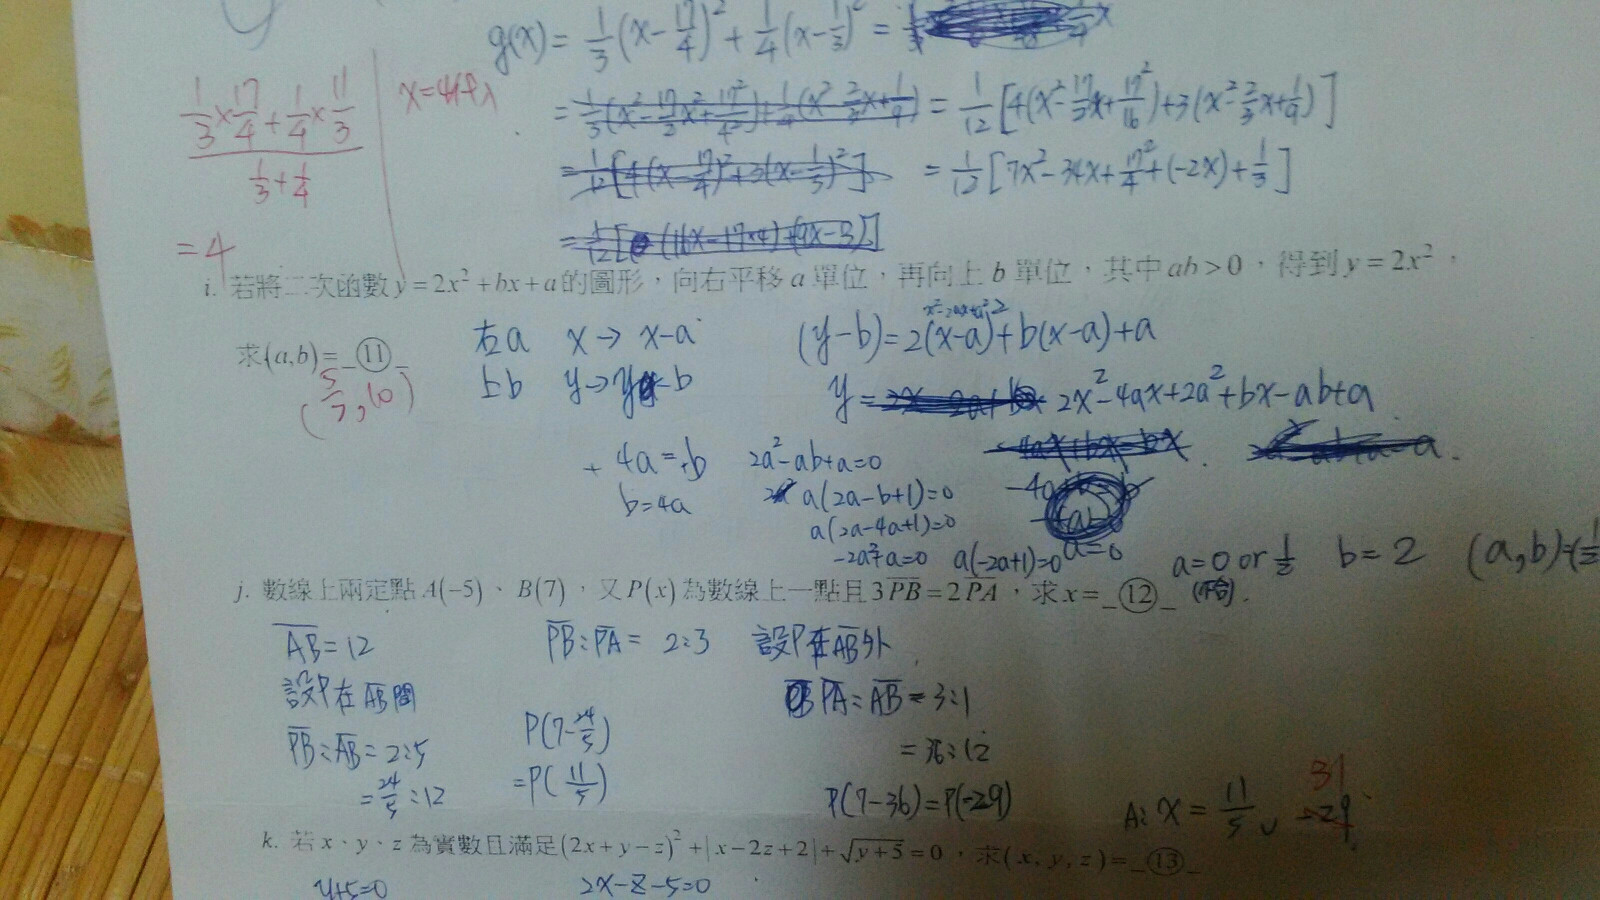 g(x) = 1/3 (x - 17/4)² + 1/4 (x - 1/3)² =
1/3 × 17/4 + 1/4 × 11/3
1/3 + 1/4
= 4
= 1/12 [4(x² - 17/2 x + 17²/16) + 3(x² - 2/3 x + 1/9)]
= 1/12 [7x² - 34x + 17²/4 + (-2x) + 1/3]
i. 若將二次函數 y = 2x² + bx + a 的圖形,向右平移 a 單位,再向上 b 單位,其中 ab > 0,得到 y = 2x²,
求(a,b) = _⑪_
(5/7, 10)
右a x → x-a
上b y → y-b
x²-2ax+a²
(y-b) = 2(x-a)² + b(x-a) + a
y = 2x² - 4ax + 2a² + bx - ab + a
4a = b
b = 4a
2a² - ab + a = 0
a(2a - b + 1) = 0
a(2a - 4a + 1) = 0
-2a² + a = 0 a(-2a+1) = 0
a = 0
a = 0 or 1/2 b = 2 (a,b) = (1/2
(不合)
j. 數線上兩定點 A(-5)、B(7),又 P(x) 為數線上一點且 3PB = 2PA,求 x = _⑫_
AB = 12 PB : PA = 2:3 設P在AB外
設P在AB間
PB : AB = 2:5
= 24/5 : 12
P(7 - 24/5)
= P(11/5)
PA : AB = 3:1
= 36:12
P(7-36) = P(-29)
A: x = 11/5 , 31
k. 若 x、y、z 為實數且滿足 (2x+y-z)² + |x-2z+2| + √(y+5) = 0,求(x, y, z) = _⑬_
y+5=0 2x-z-5=0